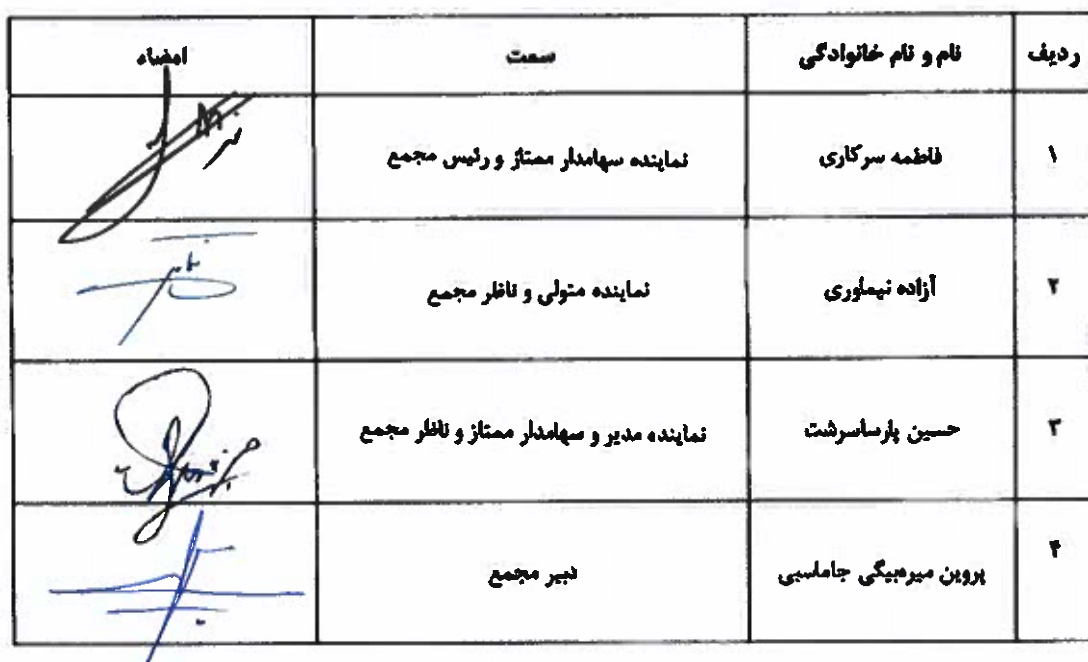 ردیف نام و نام خانوادگی سمت امضاء
۱ فاطمه سرکاری نماینده سهامدار ممتاز و رئیس مجمع
۲ آزاده نیماوری نماینده متولی و ناظر مجمع
۳ حسین پارساسرشت نماینده مدیر و سهامدار ممتاز و ناظر مجمع
۴ پروین میرمبیگی جاماسبی دبیر مجمع